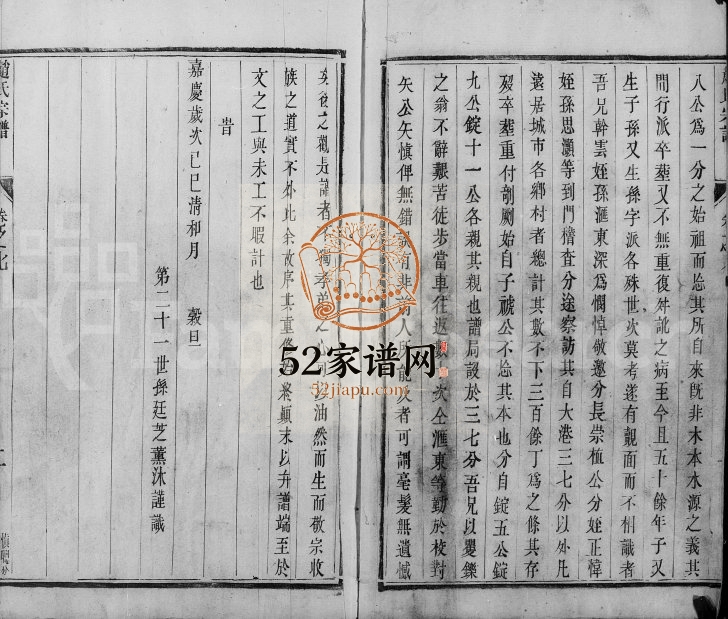 八公爲一分之始祖而忘其所自來旣非木本水源之義其
間行派卒葬又不無重復舛訛之病至今且五十餘年子又
生子孫又生孫字派各殊世次莫考遂有覿面而不相識者
吾兄幹雲姪孫滙東深爲憫悼敬邀分長崇植公分姪正幃
姪孫思灝等到門稽查分途察訪其自大港三七分以外凡
遠居城市各鄉村者總計其數不下三百餘丁爲之條其存
歿卒葬重付剞劂始自子禠公不忘其本也分自錠五公錠
九公錠十一公各親其親也譜局設於三七分吾兄以矍鑠
之翁不辭艱苦徒步當車往返 次仝滙東等勤於校對
矢公矢愼俾無錯 有非前人所能 者可謂毫髮無遺憾
矣後之觀是譜者 獨孝弟之心 油然而生而敬宗收
族之道實不外此余故序其重修始終顛末以弁譜端至於
文之工與未工不暇計也
旹
嘉慶歲次己巳清和月 穀旦
第二十一世孫廷芝薰沐謹識
趙氏宗譜
卷之九
52家谱网
52jiapu.com